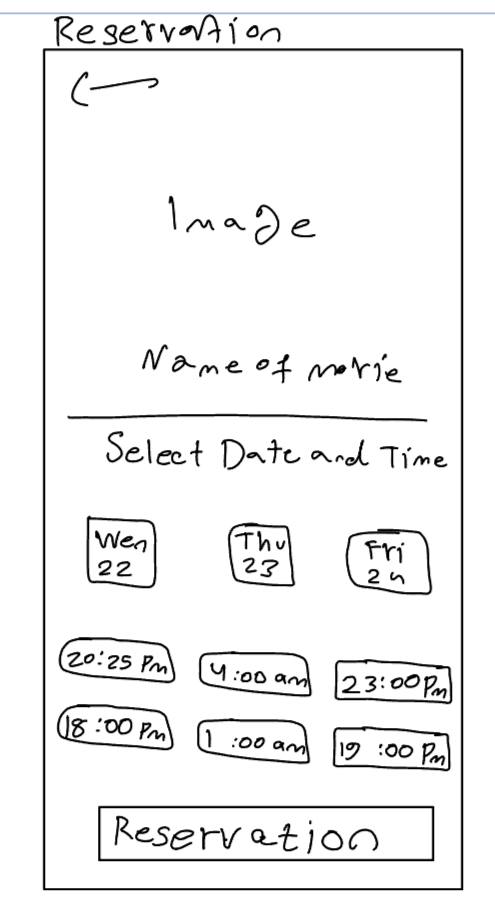 Reservation
Image
Name of movie
Select Date and Time
Wen Thu Fri
22 23 24
20:25 Pm 4:00 am 23:00 Pm
18:00 Pm 1:00 am 19:00 Pm
Reservation